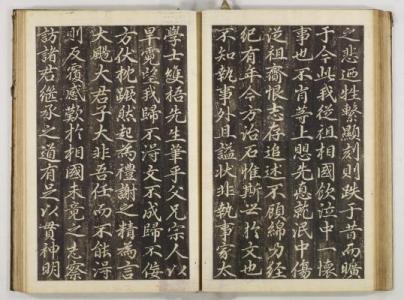 之悲迺牲繫顯刻則跌于昔而曠
于今此我從祖相國飲泣中一懷
事也不肖等上愳先就泯中傷
從祖齎恨志存追述不顧綿力經
紀有年今方治石惟斯於文也
不知執事外且謚狀非執事家太
學士雙梧先生筆乎父兄宗人以
望我歸不得文不成歸不佞
方伏枕蹶然起為禮謝之精為言
大颺大君子大非吾任而不能得
則反覆感歎於相國未竟之志察
訪諸君繼承之道有足以貫神明